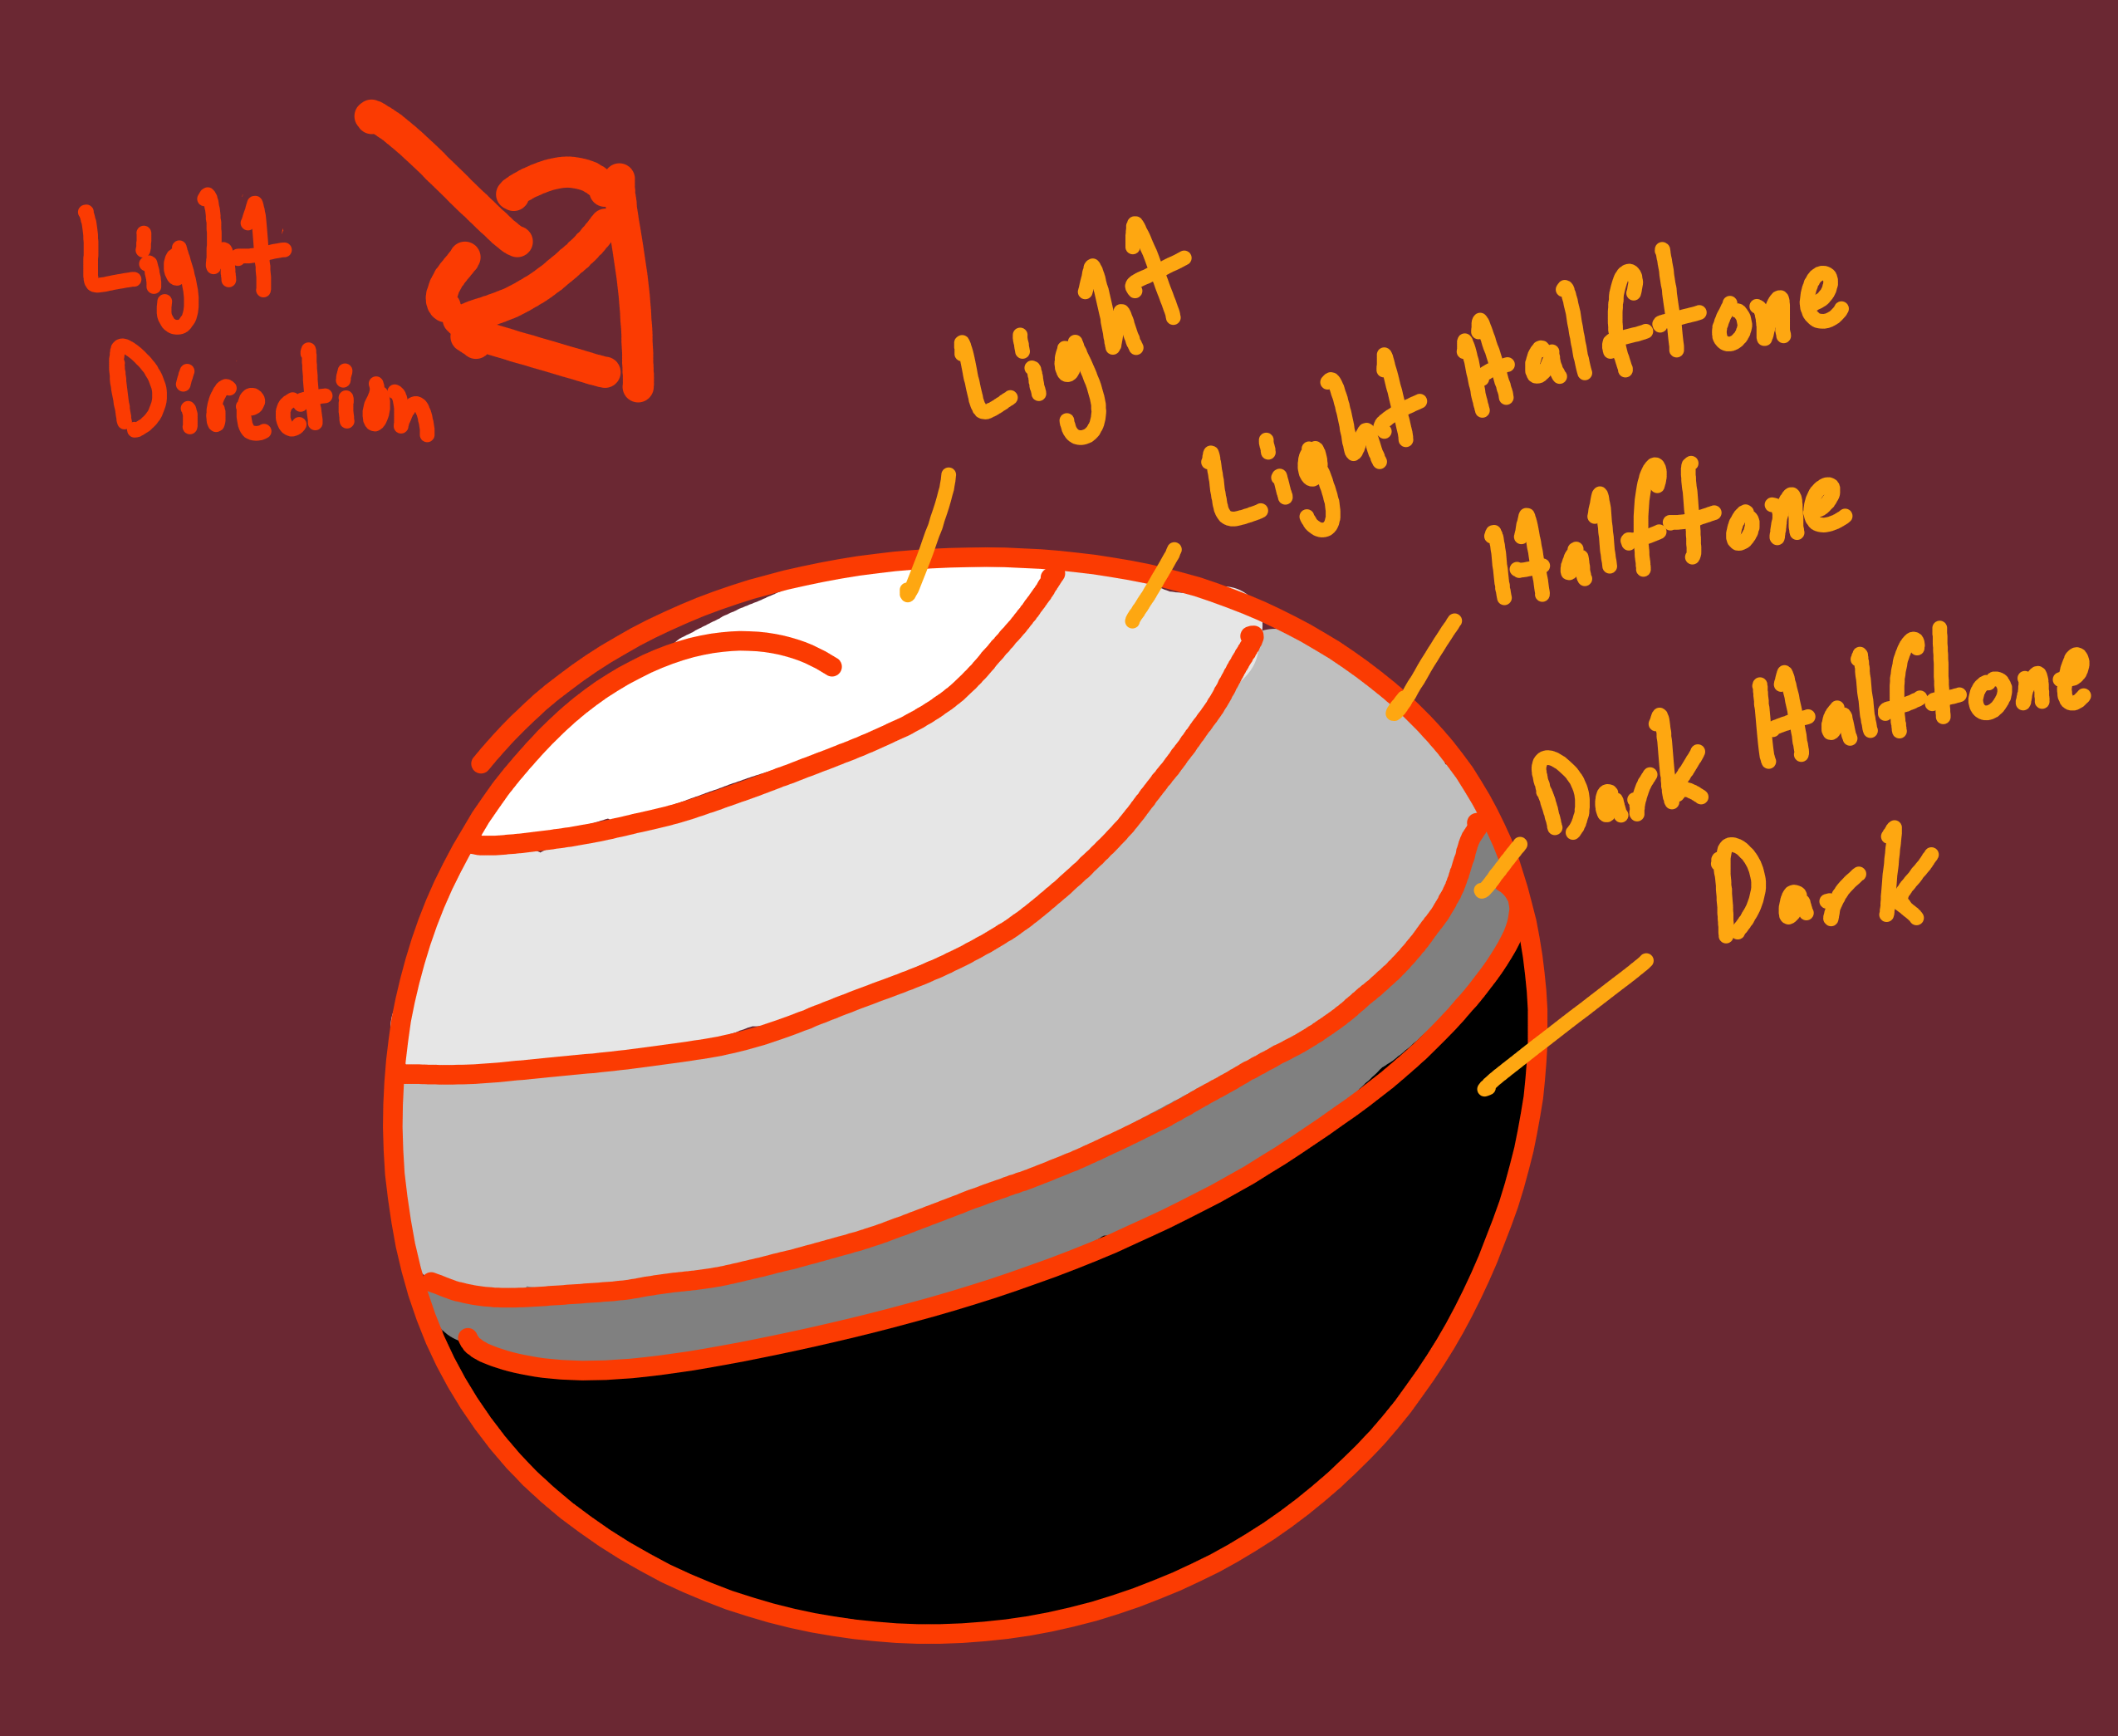 Light
Direction
Light
Light Halftone
Halftone
Dark Halftone
Dark